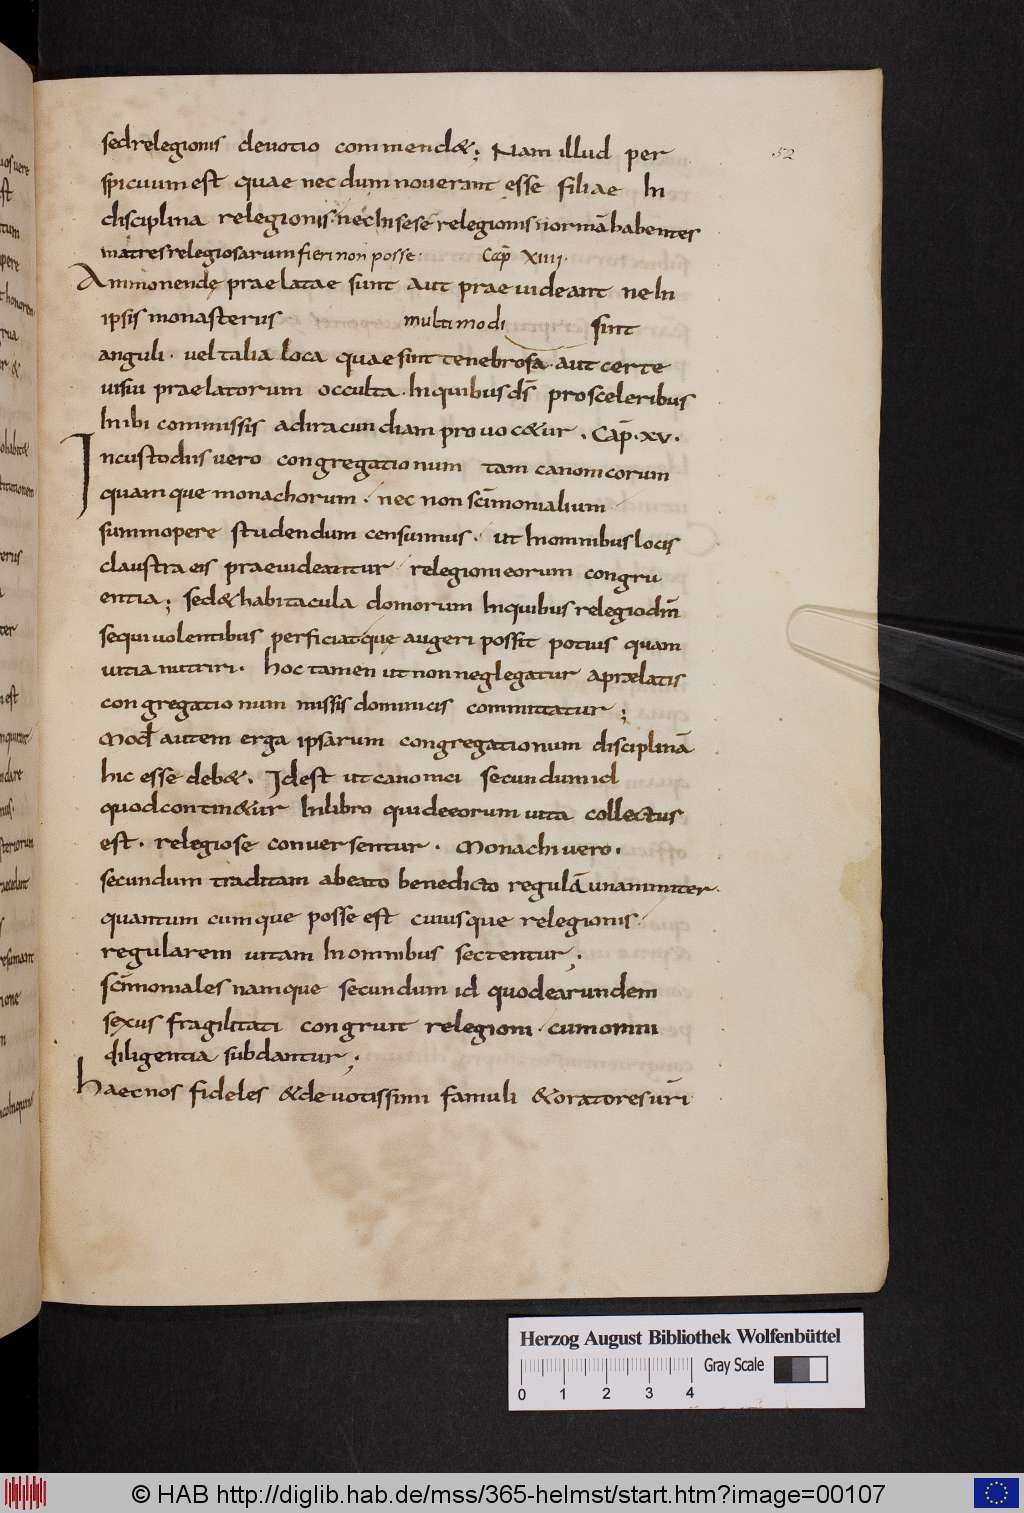 52
sed relegionis devotio commend&; Nam illud per
spicuum est quae nec dum noverant esse filiae In
disciplina relegionis nec In se se relegionis normā habentes
matres relegiosarum fieri non posse· Cap̄ XIIII·
Ammonendę praelatae sunt aut praevideant ne In
ipsis monasteriis multimodi sint
anguli· vel talia loca quae sint tenebrosa· aut certe
visui praelatorum occulta· In quibus ds̄ pro sceleribus
In ibi commissis ad iracundiam provoc&ur· Cap̄·XV·
In custodiis vero congregationum tam canonicorum
quamque monachorum· nec non scīmonialium
summopere studendum censuimus· ut In omnibus locis
claustra eis praevideantur religioni eorum congru
entia; sed & habitacula domorum In quibus relegio dm̄
sequi volentibus perficiatque augeri possit potius quam
vitia nutriri· hoc tamen ut non neglegatur a prælatis
congregationum missis dominicis committatur;
Mod̄ autem erga ipsarum congregationum disciplinā
hic esse deb&· Id est ut canonici secundum id
quod contin&ur In libro qui de eorum vita collectus
est· relegiose conversentur· Monachi vero·
secundum traditam a beato benedicto regulā unanimiter·
quantumcumque posse est cuiusque relegionis·
regularem vitam In omnibus sectentur;
Scīmoniales namque secundum id quod earundem
sexus fragilitati congruit relegioni· cum omni
diligentia subdantur;
Haec nos fideles & devotissimi famuli & oratores ūri
Herzog August Bibliothek Wolfenbüttel
Gray Scale
0 1 2 3 4
© HAB http://diglib.hab.de/mss/365-helmst/start.htm?image=00107